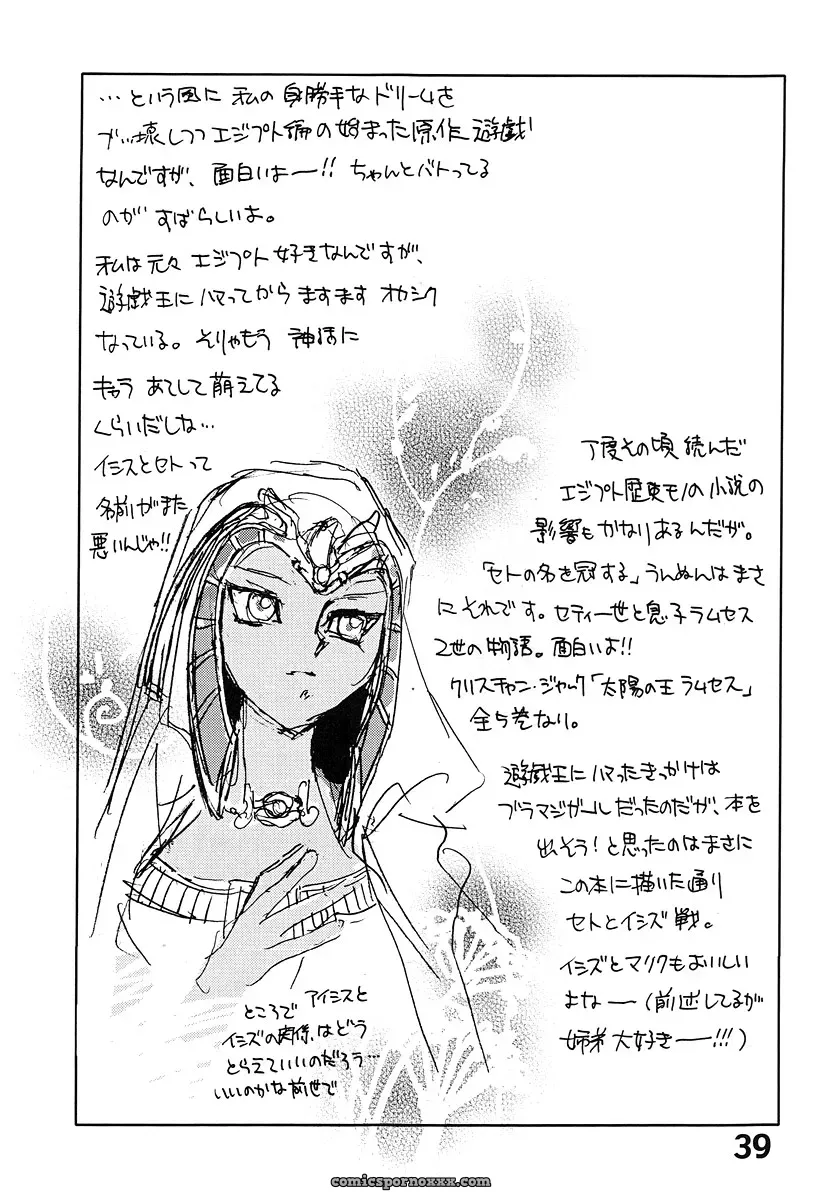 …という風に 私の身勝手なドリームを
ブッ壊しつつエジプト編の始まった原作遊戯
なんですが、面白いよー!! ちゃんとバトってる
のが すばらしいよ。
私は元々 エジプト好きなんですが、
遊戯王にハマってから ますます オカシク
なっている。そりゃもう 神話に
キャラ あてして萌えてる
くらいだしな…
イシスとセトって
名前がまた
悪いんじゃ!!
丁度その頃 読んだ
エジプト歴史モノの小説の
影響もかなりあるんだが。
「セトの名を冠する」うんぬんはまさ
にそれです。セティ一世と息子ラムセス
2世の物語。面白いよ!!
クリスチャン・ジャック「太陽の王 ラムセス」
全5巻なり。
遊戯王にハマったきっかけは
ブラマジガールだったのだが、本を
出そう!と思ったのはまさに
この本に描いた通り
セトとイシズ戦。
イシズとマリクもおいしい
よなー(前述してるが
姉弟 大好きー!!!)
ところで アイシスと
イシズの関係はどう
とらえていいのだろう…
いいのかな前世で
39
comicspornoxxx.com